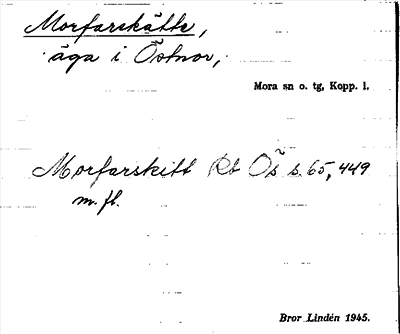 Morfarskätte,
äga i Östnor,
Mora sn o. tg, Kopp. l.
Morfarskitt Rb Ös s. 65, 449
m. fl.
Bror Lindén 1945.